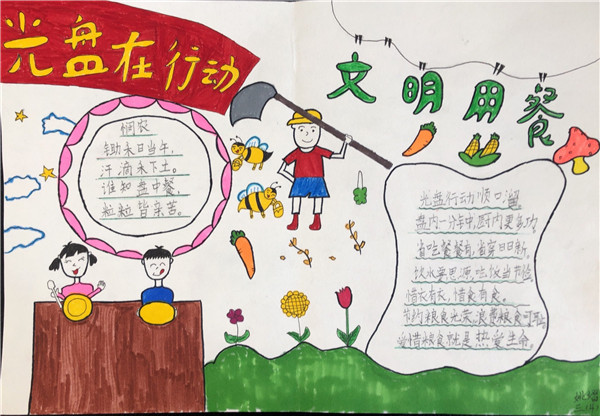 光盘在行动
文明用餐
悯农
锄禾日当午,
汗滴禾下土。
谁知盘中餐,
粒粒皆辛苦。
光盘行动顺口溜
盘内一分钟,厨内更多功,
省吃餐餐有,省穿日日新。
饮水要思源,吃饭当节俭。
惜衣有衣,惜食有食。
节约粮食光荣,浪费粮食可耻
珍惜粮食就是热爱生命。